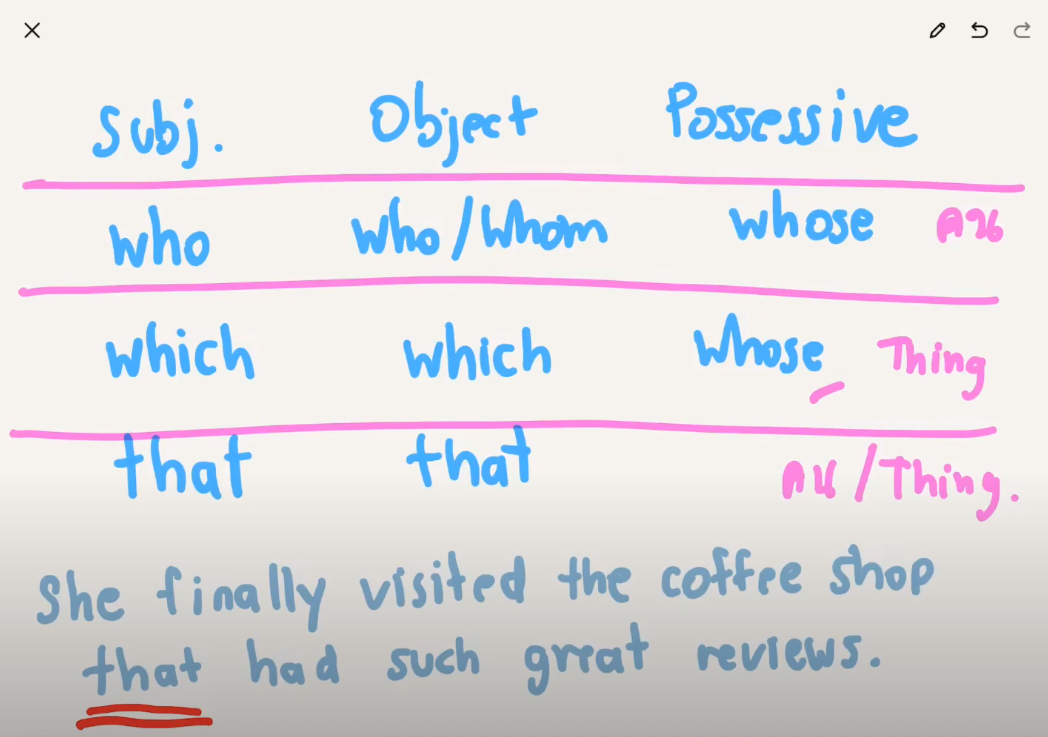 Subj. Object Possessive
who who/whom whose คน
which which whose Thing
that that คน/Thing.
She finally visited the coffee shop
that had such great reviews.